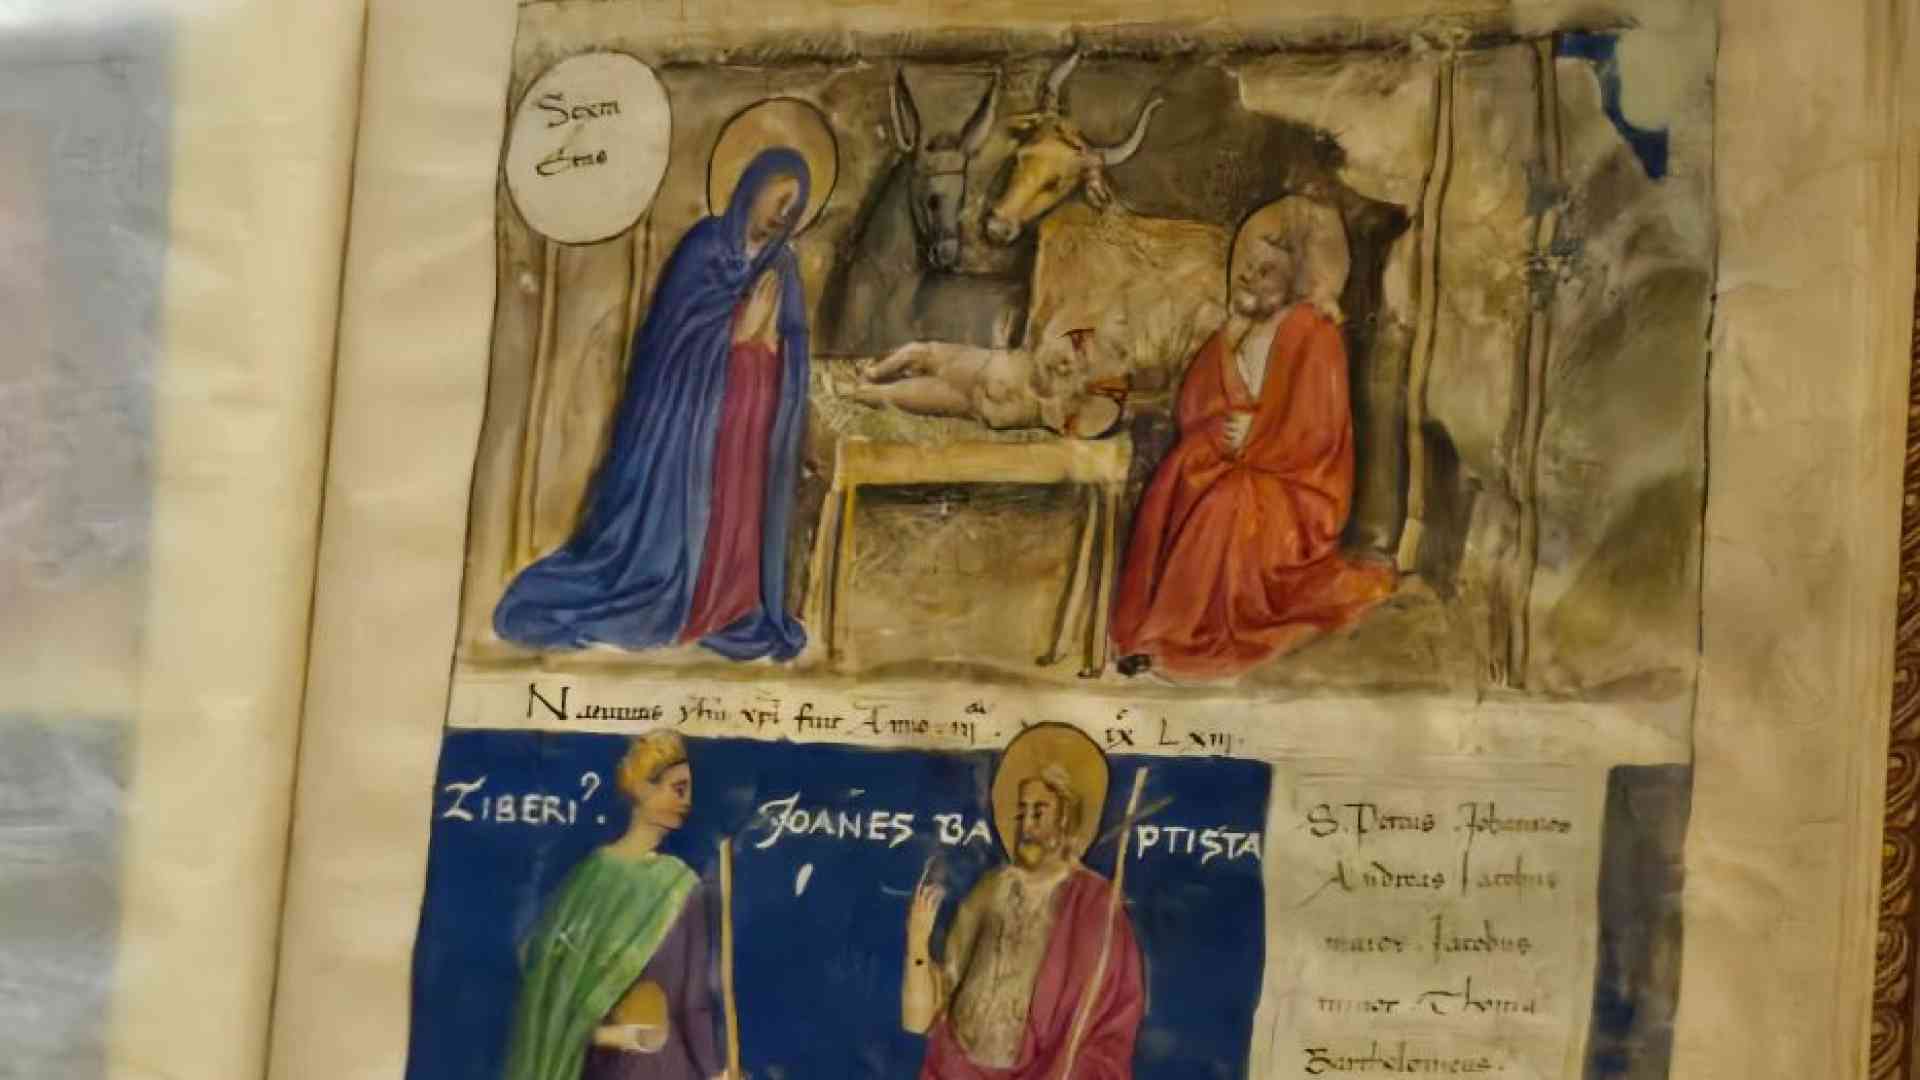 Sexta
Etas
Natiuitas yhu xpi fuit Anno iii ix Lxiii.
TIBERI?.
JOANES BAPTISTA
S. Petrus Johannes
Andreas Jacobus
maior Jacobus
minor Thoma
Bartholomeus.